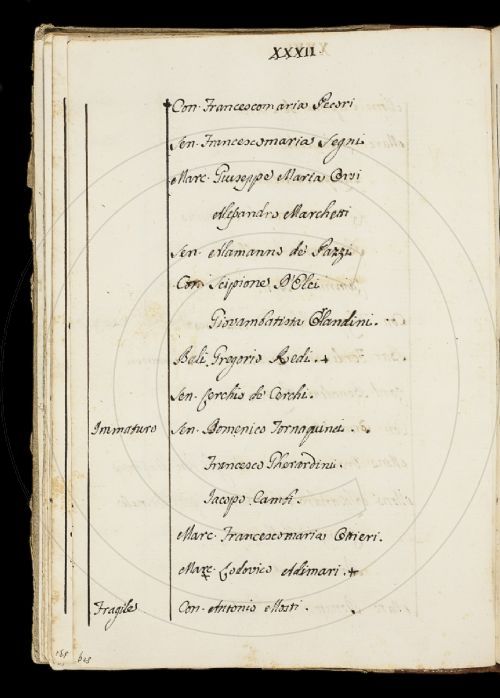 XXXII
Con. Francescomaria Pecori
Sen. Francescomaria Segni
Marc. Giuseppe Maria Corsi
Alessandro Marchetti
Sen. Alamanno de' Pazzi
Con. Scipione D'Elci
Giovambatista Orlandini.
Balì Gregorio Redi. +
Sen. Cerchio de' Cerchi.
Immaturo Sen. Domenico Tornaquinci.
Francesco Gherardini.
Jacopo
Marc. Francescomaria Ottieri.
Marc. Lodovico Adimari. +
Fragile Con. Antonio Mosti.